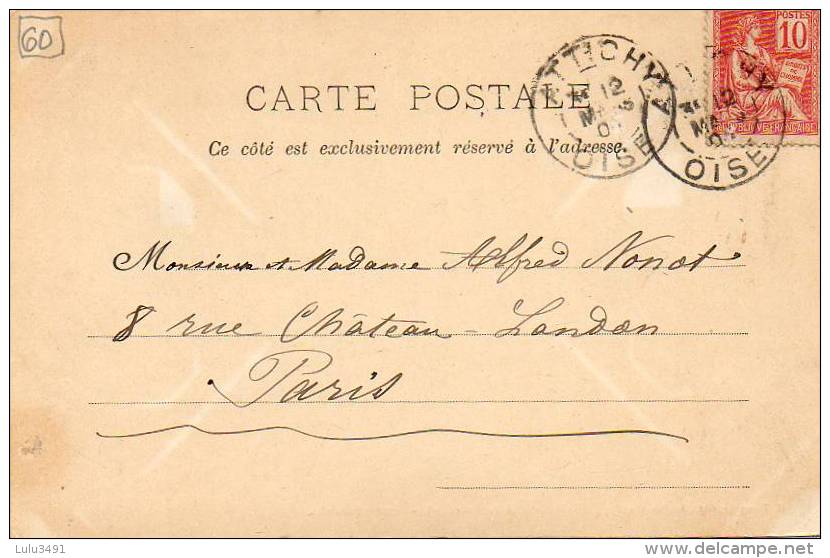 60
POSTES
10
DROITS DE L'HOMME
RÉPUBLIQUE FRANÇAISE
ATTICHY
12
MA
OISE
12
MA
OISE
CARTE POSTALE
Ce côté est exclusivement réservé à l'adresse.
Monsieur et Madame Alfred Nonot
8 rue Château-Landon
Paris
Lulu3491
delcampe.net